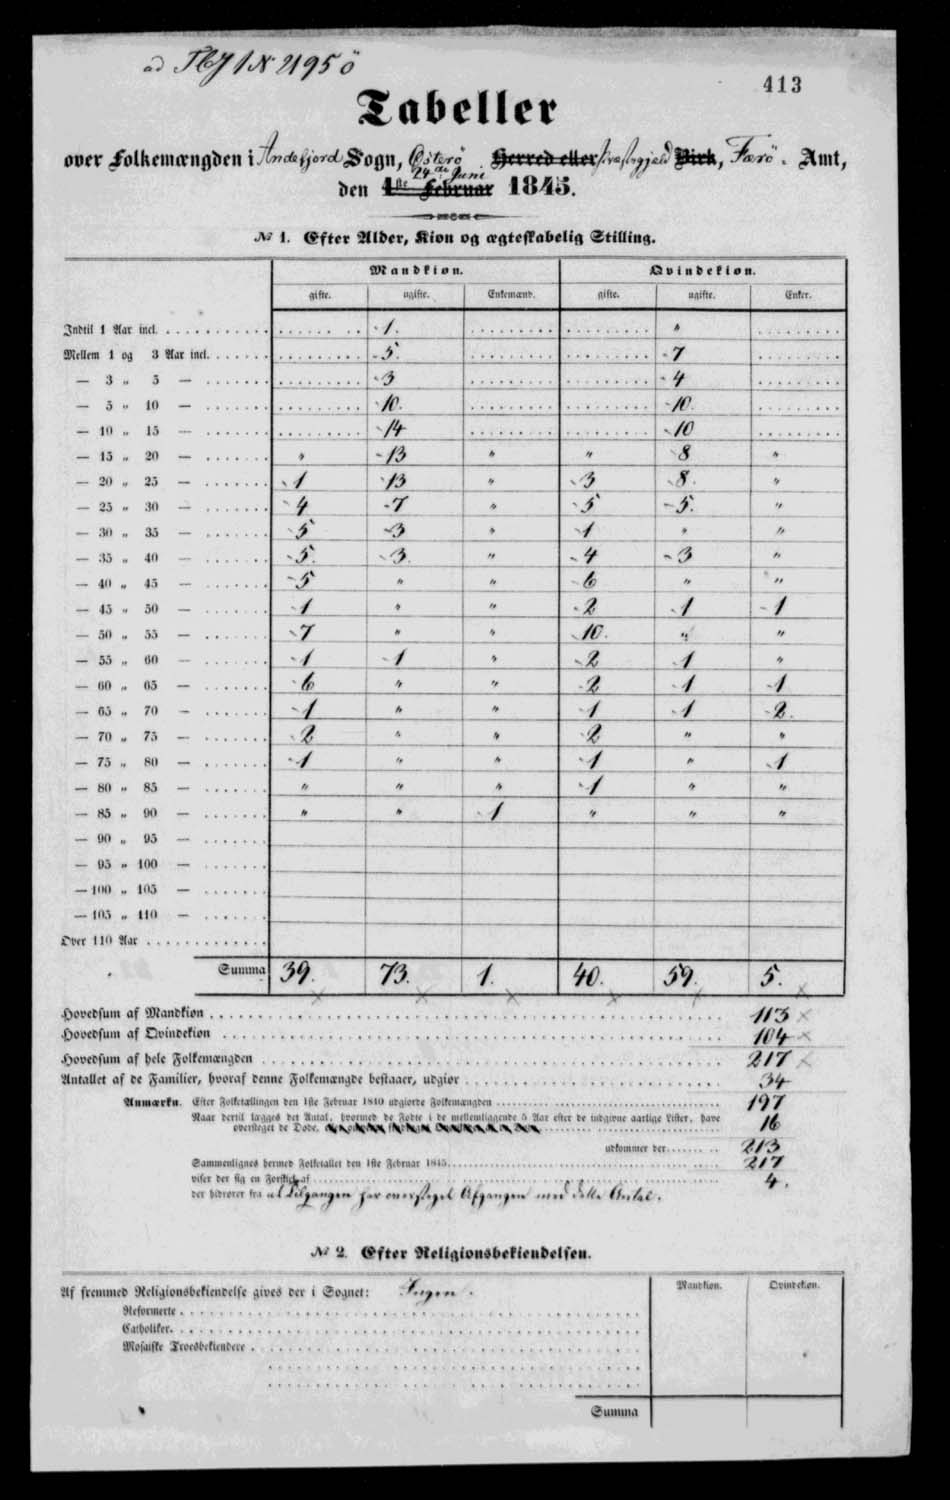 ad
413
Tabeller
over Folkemængden i Andefjord Sogn, Österö Herred eller Præstegjeld Birk, Færö Amt,
24de Juni
den 1ste Februar 1845.
№ 1. Efter Alder, Kiøn og ægteskabelig Stilling.
Mandkiøn. Qvindekiøn.
gifte. ugifte. Enkemænd. gifte. ugifte. Enker.
Indtil 1 Aar incl. 1. "
Mellem 1 og 3 Aar incl. 5. 7
— 3 " 5 — 3 4
— 5 " 10 — 10. 10.
— 10 " 15 — 14 10
— 15 " 20 — " 13 " " 8 "
— 20 " 25 — 1 13 " 3 8. "
— 25 " 30 — 4 7 " 5 5. "
— 30 " 35 — 5 3 " 1 " "
— 35 " 40 — 5. 3. " 4 3 "
— 40 " 45 — 5 " " 6 " "
— 45 " 50 — 1 " " 2 1 1
— 50 " 55 — 7 " " 10. " "
— 55 " 60 — 1 1 " 2 1 "
— 60 " 65 — 6 " " 2 1 1
— 65 " 70 — 1 " " 1 1 2.
— 70 " 75 — 2 " " 2 " "
— 75 " 80 — 1 " " 1 " 1
— 80 " 85 — " " " 1 " "
— 85 " 90 — " " 1 " " "
— 90 " 95 —
— 95 " 100 —
— 100 " 105 —
— 105 " 110 —
Over 110 Aar
Summa 39. 73. 1. 40. 59. 5.
Hovedsum af Mandkiøn 113
Hovedsum af Qvindekiøn 104
Hovedsum af hele Folkemængden 217
Antallet af de Familier, hvoraf denne Folkemængde bestaaer, udgiør 34
Anmærkn. Efter Folketællingen den 1ste Februar 1840 udgiorde Folkemængden 197
Naar dertil lægges det Antal, hvormed de Fødte i de mellemliggende 5 Aar efter de indgivne aarlige Lister, have
oversteget de Døde, 16
udkommer der 213
Sammenlignes hermed Folketallet den 1ste Februar 1845 217
viser der sig en Forskiel af 4.
der hidrører fra at Tilgangen har oversteget Afgangen med dette Antal.
№ 2. Efter Religionsbekiendelsen.
Mandkiøn. Qvindekiøn.
Af fremmed Religionsbekiendelse gives der i Sognet: Ingen.
Reformerte
Catholiker
Mosaiske Troesbekiendere
Summa